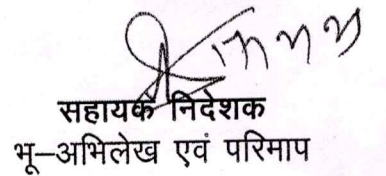 सहायक निदेशक
भू–अभिलेख एवं परिमाप